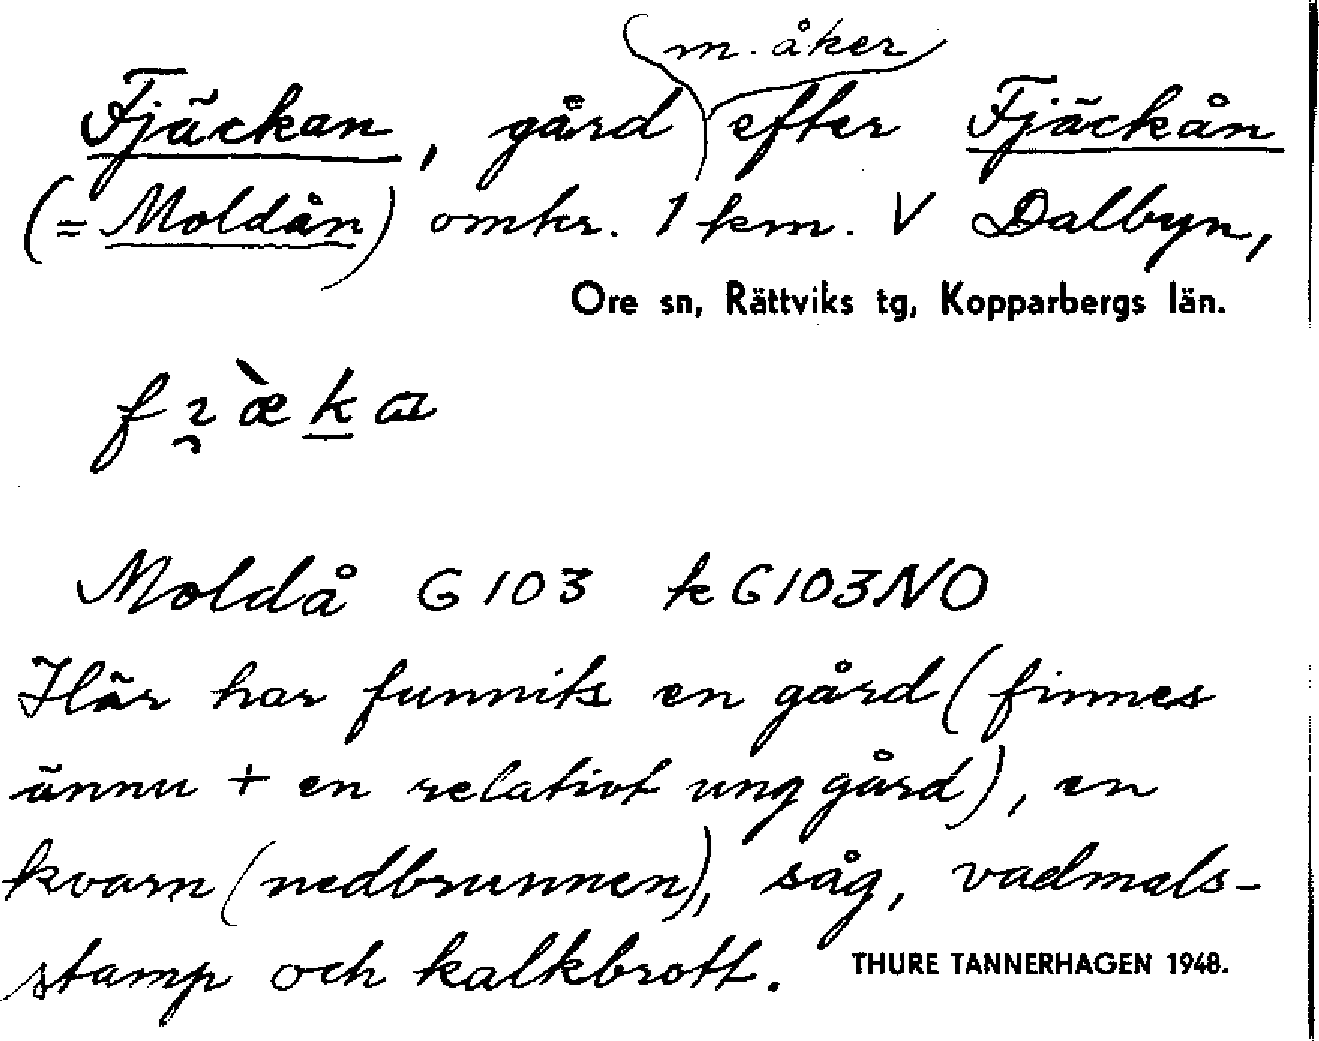 m. åker
Fjäckan, gård efter Fjäckån
(= Moldån) omkr. 1 km. V Dalbyn,
Ore sn, Rättviks tg, Kopparbergs län.
Moldå G 103 k G103NO
Här har funnits en gård (finnes
ännu + en relativt ung gård), en
kvarn (nedbrunnen), såg, vadmals-
stamp och kalkbrott. THURE TANNERHAGEN 1948.